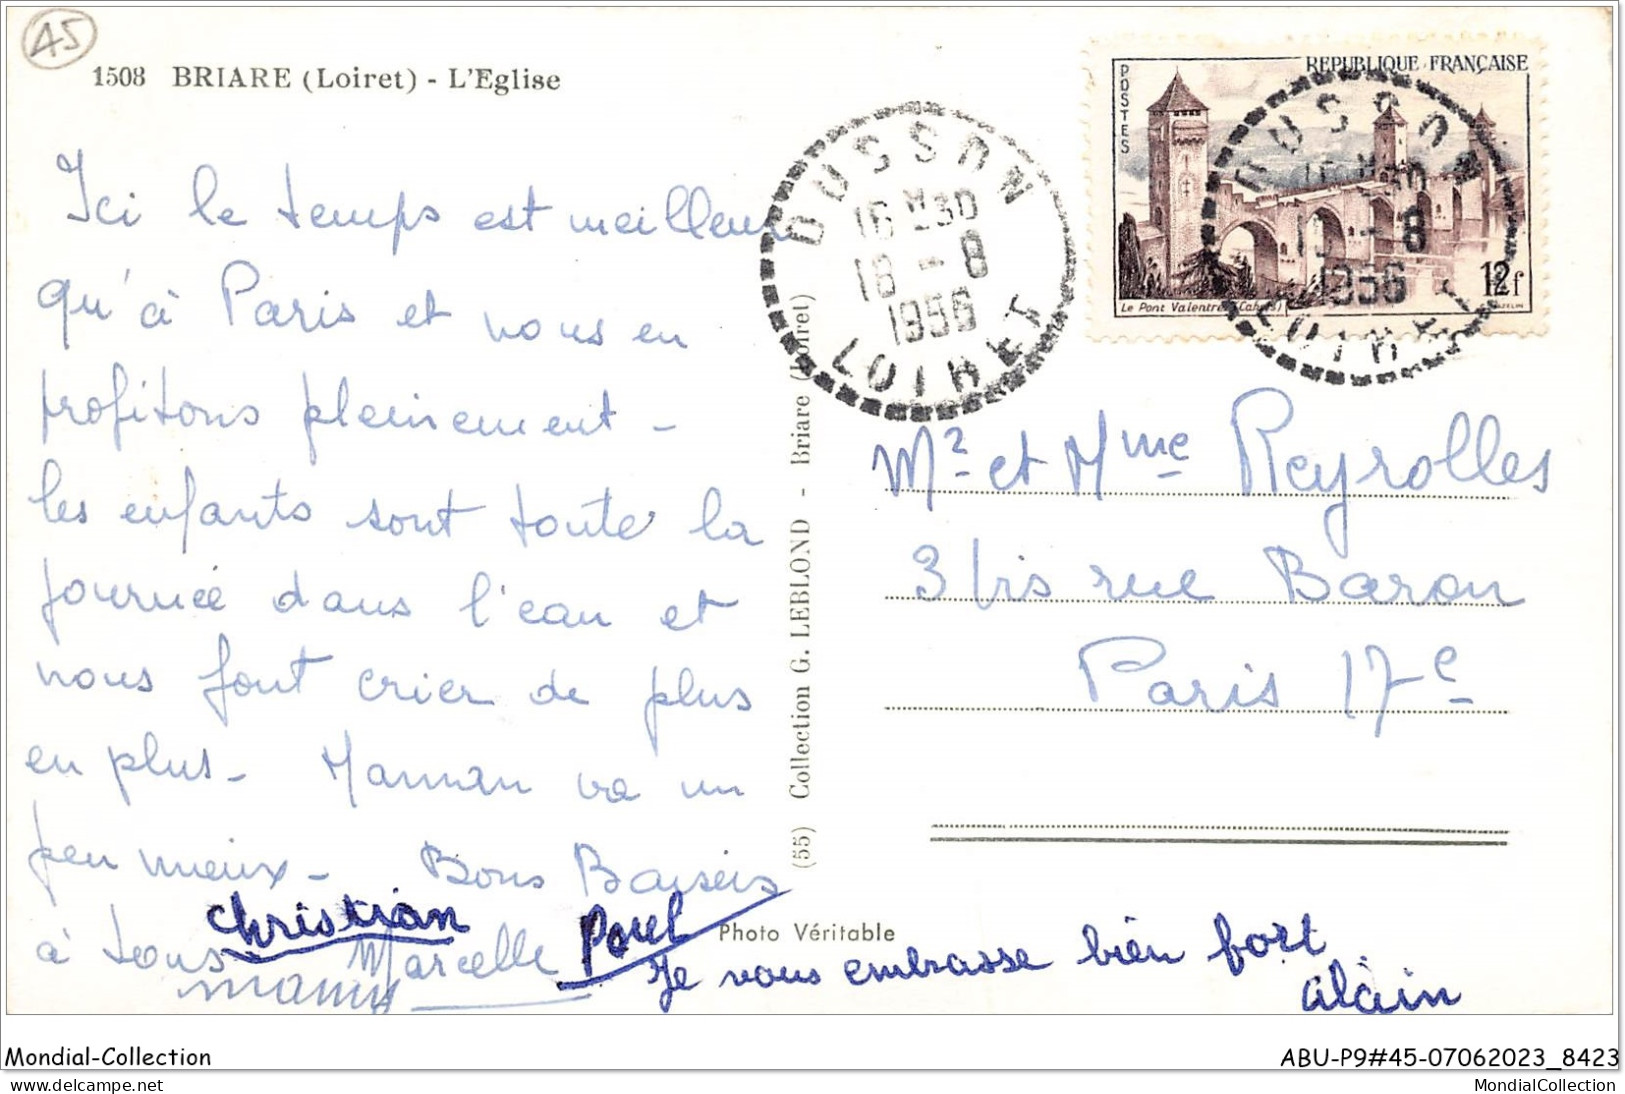 45
1508 BRIARE (Loiret) - L'Eglise
Ici le temps est meilleur
qu'à Paris et nous en
profitons pleinement -
les enfants sont toute la
journée dans l'eau et
nous font crier de plus
en plus - Maman va un
peu mieux - Bons Baisers
à tous Marcelle
Christian
Poul
mamy
Je vous embrasse bien fort
alain
(55) Collection G. LEBLOND - Briare (Loiret)
Photo Véritable
OUSSON
16 H30
18 - 8
1956
LOIRET
POSTES
REPUBLIQUE FRANÇAISE
12f
Le Pont Valentré (Cahors)
OUSSON
18 - 8
1956
LOIRET
Mr et Mme Reyrolles
3 bis rue Baron
Paris 17e
Mondial-Collection
ABU-P9#45-07062023_8423
delcampe.net
MondialCollection